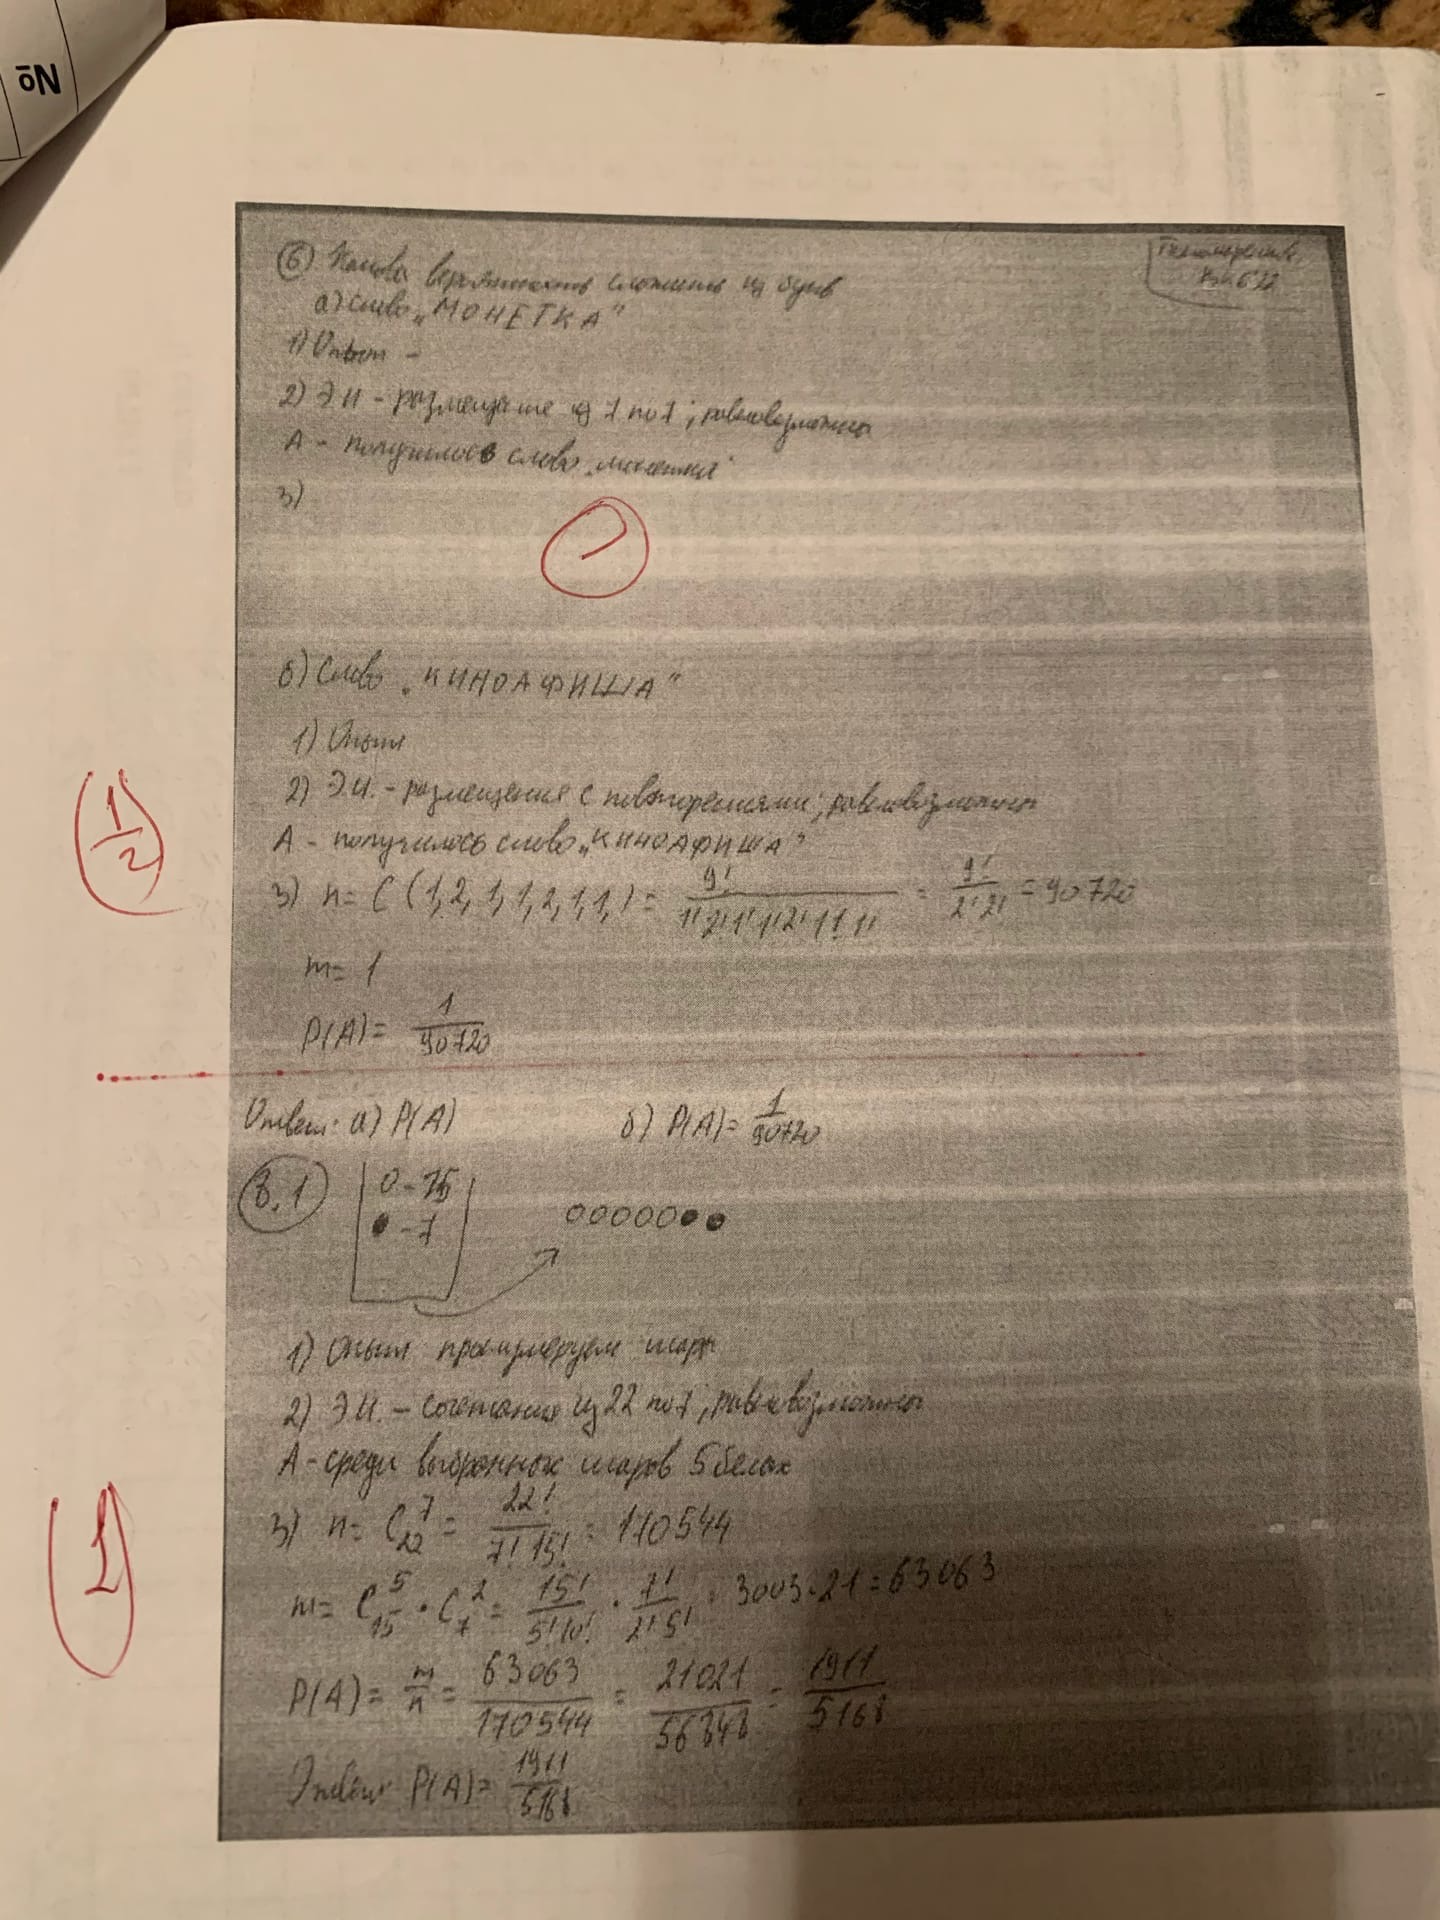 №
6) Какова вероятность сложить из букв
а) слово „МОНЕТКА"
1) Опыт -
2) ЭИ - размещение из 7 по 7; равновозможны
А - получилось слово „монетка"
3)
б) Слово „КИНОАФИША"
1) Опыт
2) Э.И. - размещения с повторениями; равновозможны
А - получилось слово „КИНОАФИША"
1/2
3) n = C (1,2,1,1,2,1,1,) = 9! / 1! 2! 1! 1! 2! 1! 1! = 9! / 2! 2! = 90720
m = 1
P(A) = 1/90720
Ответ: а) P(A) б) P(A) = 1/90720
8.1
0 - 15
● - 7
ООООО●●
1) Опыт пронумеруем шары
2) Э.И. - сочетания из 22 по 7; равновозможны
А - среди выбранных шаров 5 белых
1
3) n = C₂₂⁷ = 22! / 7! 15! = 170544
m = C₁₅⁵ · C₇² = 15! / 5! 10! · 7! / 2! 5! = 3003 · 21 = 63063
P(A) = m/n = 63063/170544 = 21021/56848 = 1911/5168
Ответ: P(A) = 1911/5168